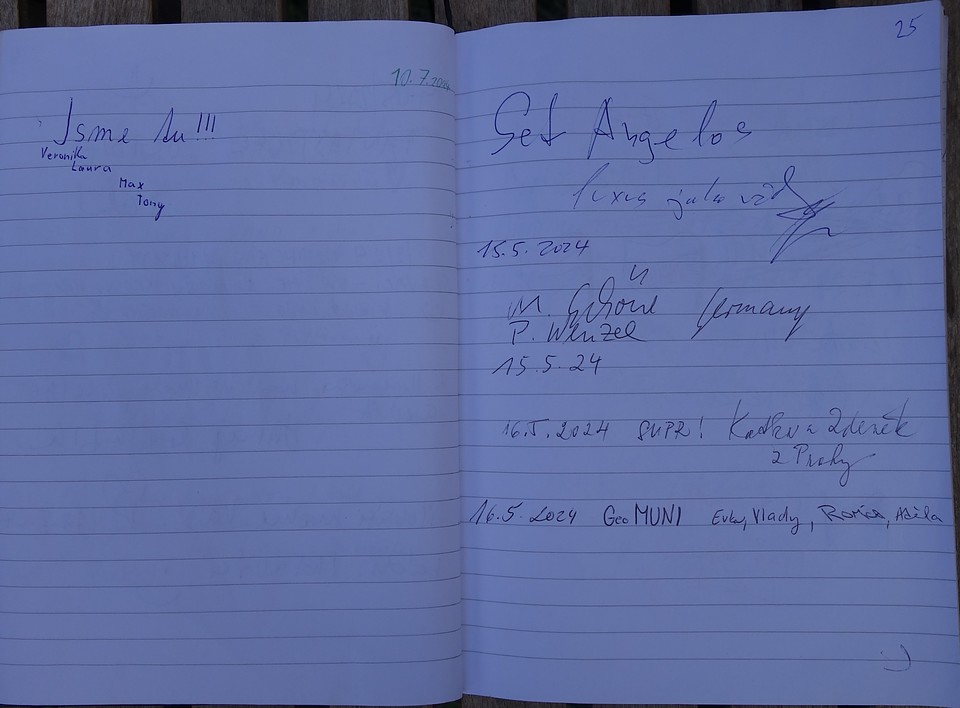 10.7.2024
Jsme tu!!!
Veronika
Laura
Max
Tony
25
Set Angelos
luxus jako vžd
15.5.2024
M. Germany
P. Wenzel
15.5.24
16.5.2024 SUPR! Kadka a Zdeněk
z Prahy
16.5.2024 Geo MUNI Evka, Vlady, Roman, Adéla
:)